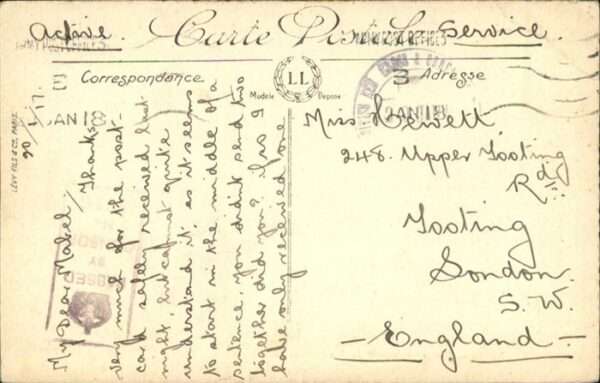 Active.
Carte Postale
Service.
ARMY POST OFFICES
Correspondance
LL
Modèle Déposé
3
Adresse
JAN 18
JAN 18
LEVY FILS & Cie, PARIS
Miss Hewett.
248. Upper Tooting
Rd.
Tooting
London
S.W.
England.
PASSED
BY
CENSOR
My Dear Mabel/ Thanks
very much for the post-
card safely received last
night, but cannot quite
understand it as it seems
to start in the middle of a
sentence, you didn't send two
together did you? if so I
have only received one